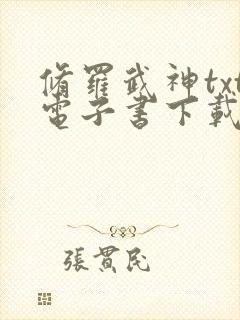 脩羅武神txt
電子書下載
張貫民